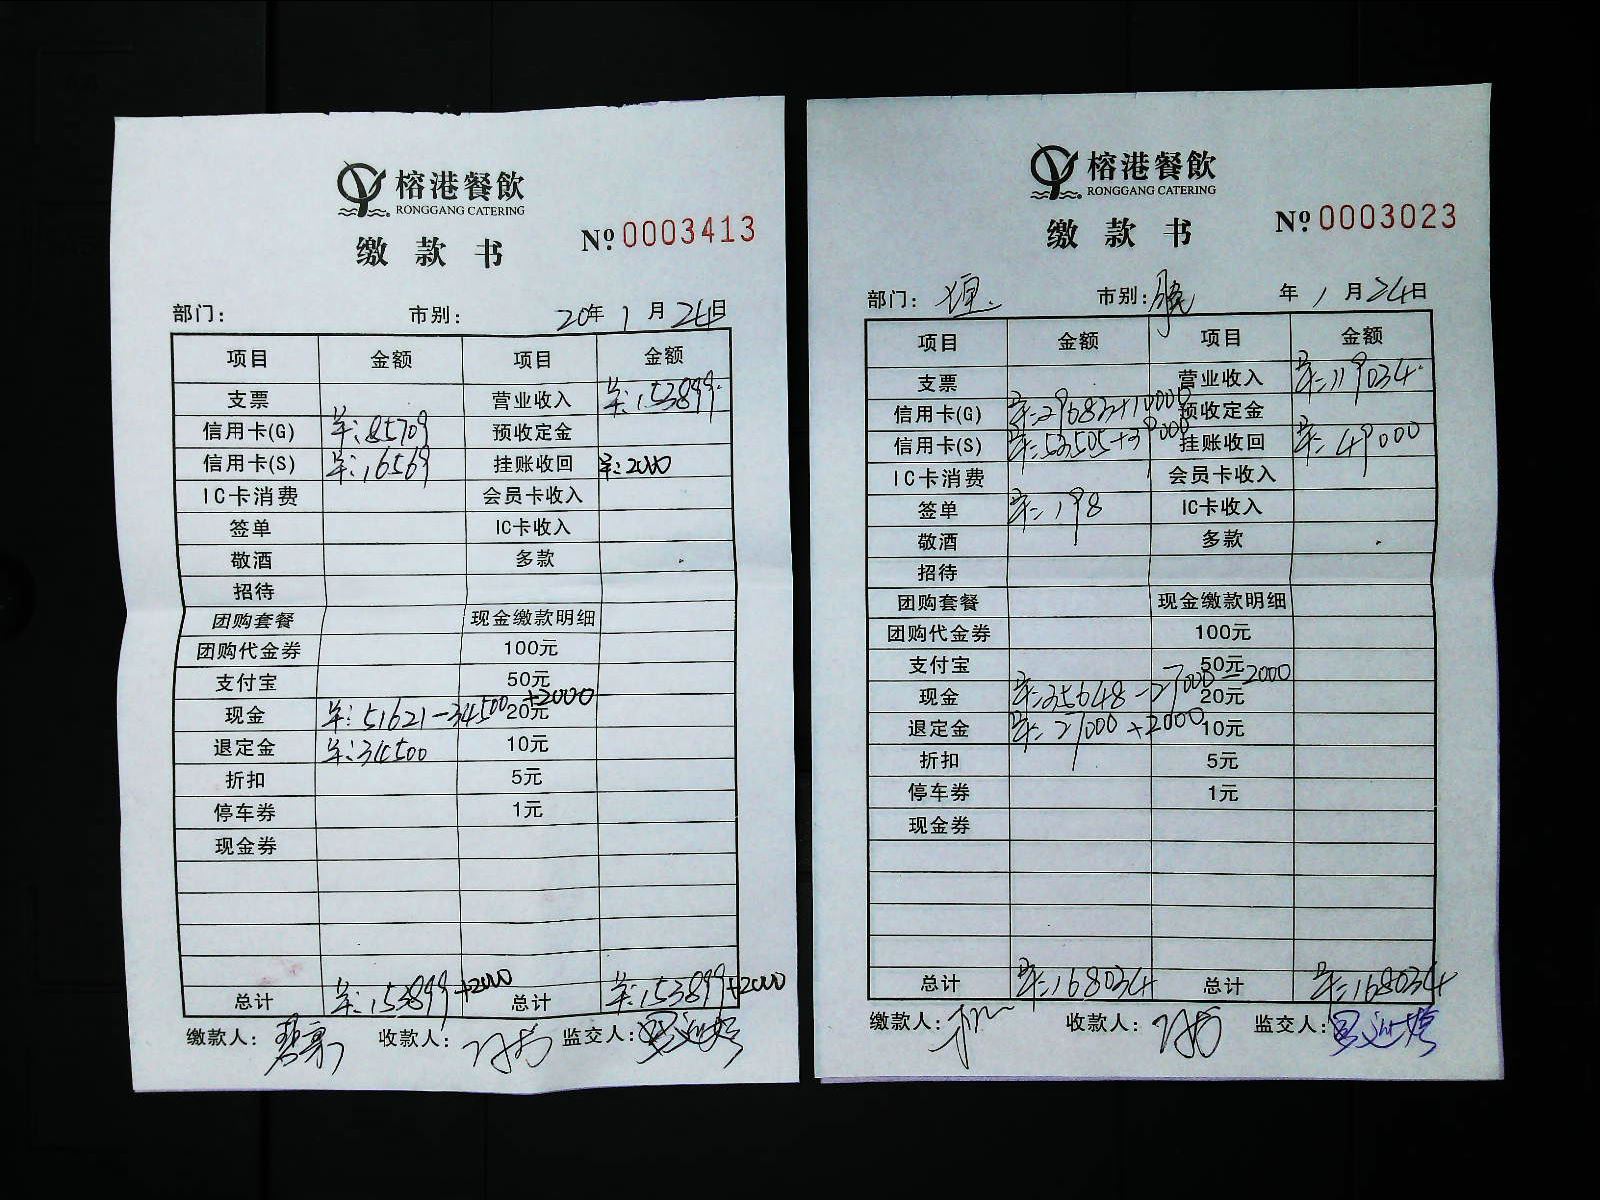 榕港餐飲
RONGGANG CATERING
缴款书
№ 0003413
部门： 市别： 20年 1月 24日
项目 金额 项目 金额
支票 营业收入 ¥:153899.
信用卡(G) ¥:85709 预收定金
信用卡(S) ¥:16569 挂账收回 ¥:2000
IC卡消费 会员卡收入
签单 IC卡收入
敬酒 多款
招待
团购套餐 现金缴款明细
团购代金券 100元
支付宝 50元
现金 ¥:51621-34500+2000 20元
退定金 ¥:34500 10元
折扣 5元
停车券 1元
现金券
总计 ¥:153899+2000 总计 ¥:153899+2000
缴款人： 收款人： 监交人：
榕港餐飲
RONGGANG CATERING
缴款书
№ 0003023
部门： 市别：晚 年 1月 24日
项目 金额 项目 金额
支票 营业收入 ¥:119034.
信用卡(G) ¥:29683+10000 预收定金
信用卡(S) ¥:53505+39000 挂账收回 ¥:49000
IC卡消费 会员卡收入
签单 ¥:198 IC卡收入
敬酒 多款
招待
团购套餐 现金缴款明细
团购代金券 100元
支付宝 50元
现金 ¥:35648-27000-2000 20元
退定金 ¥:27000+2000 10元
折扣 5元
停车券 1元
现金券
总计 ¥:168034 总计 ¥:168034
缴款人： 收款人： 监交人：